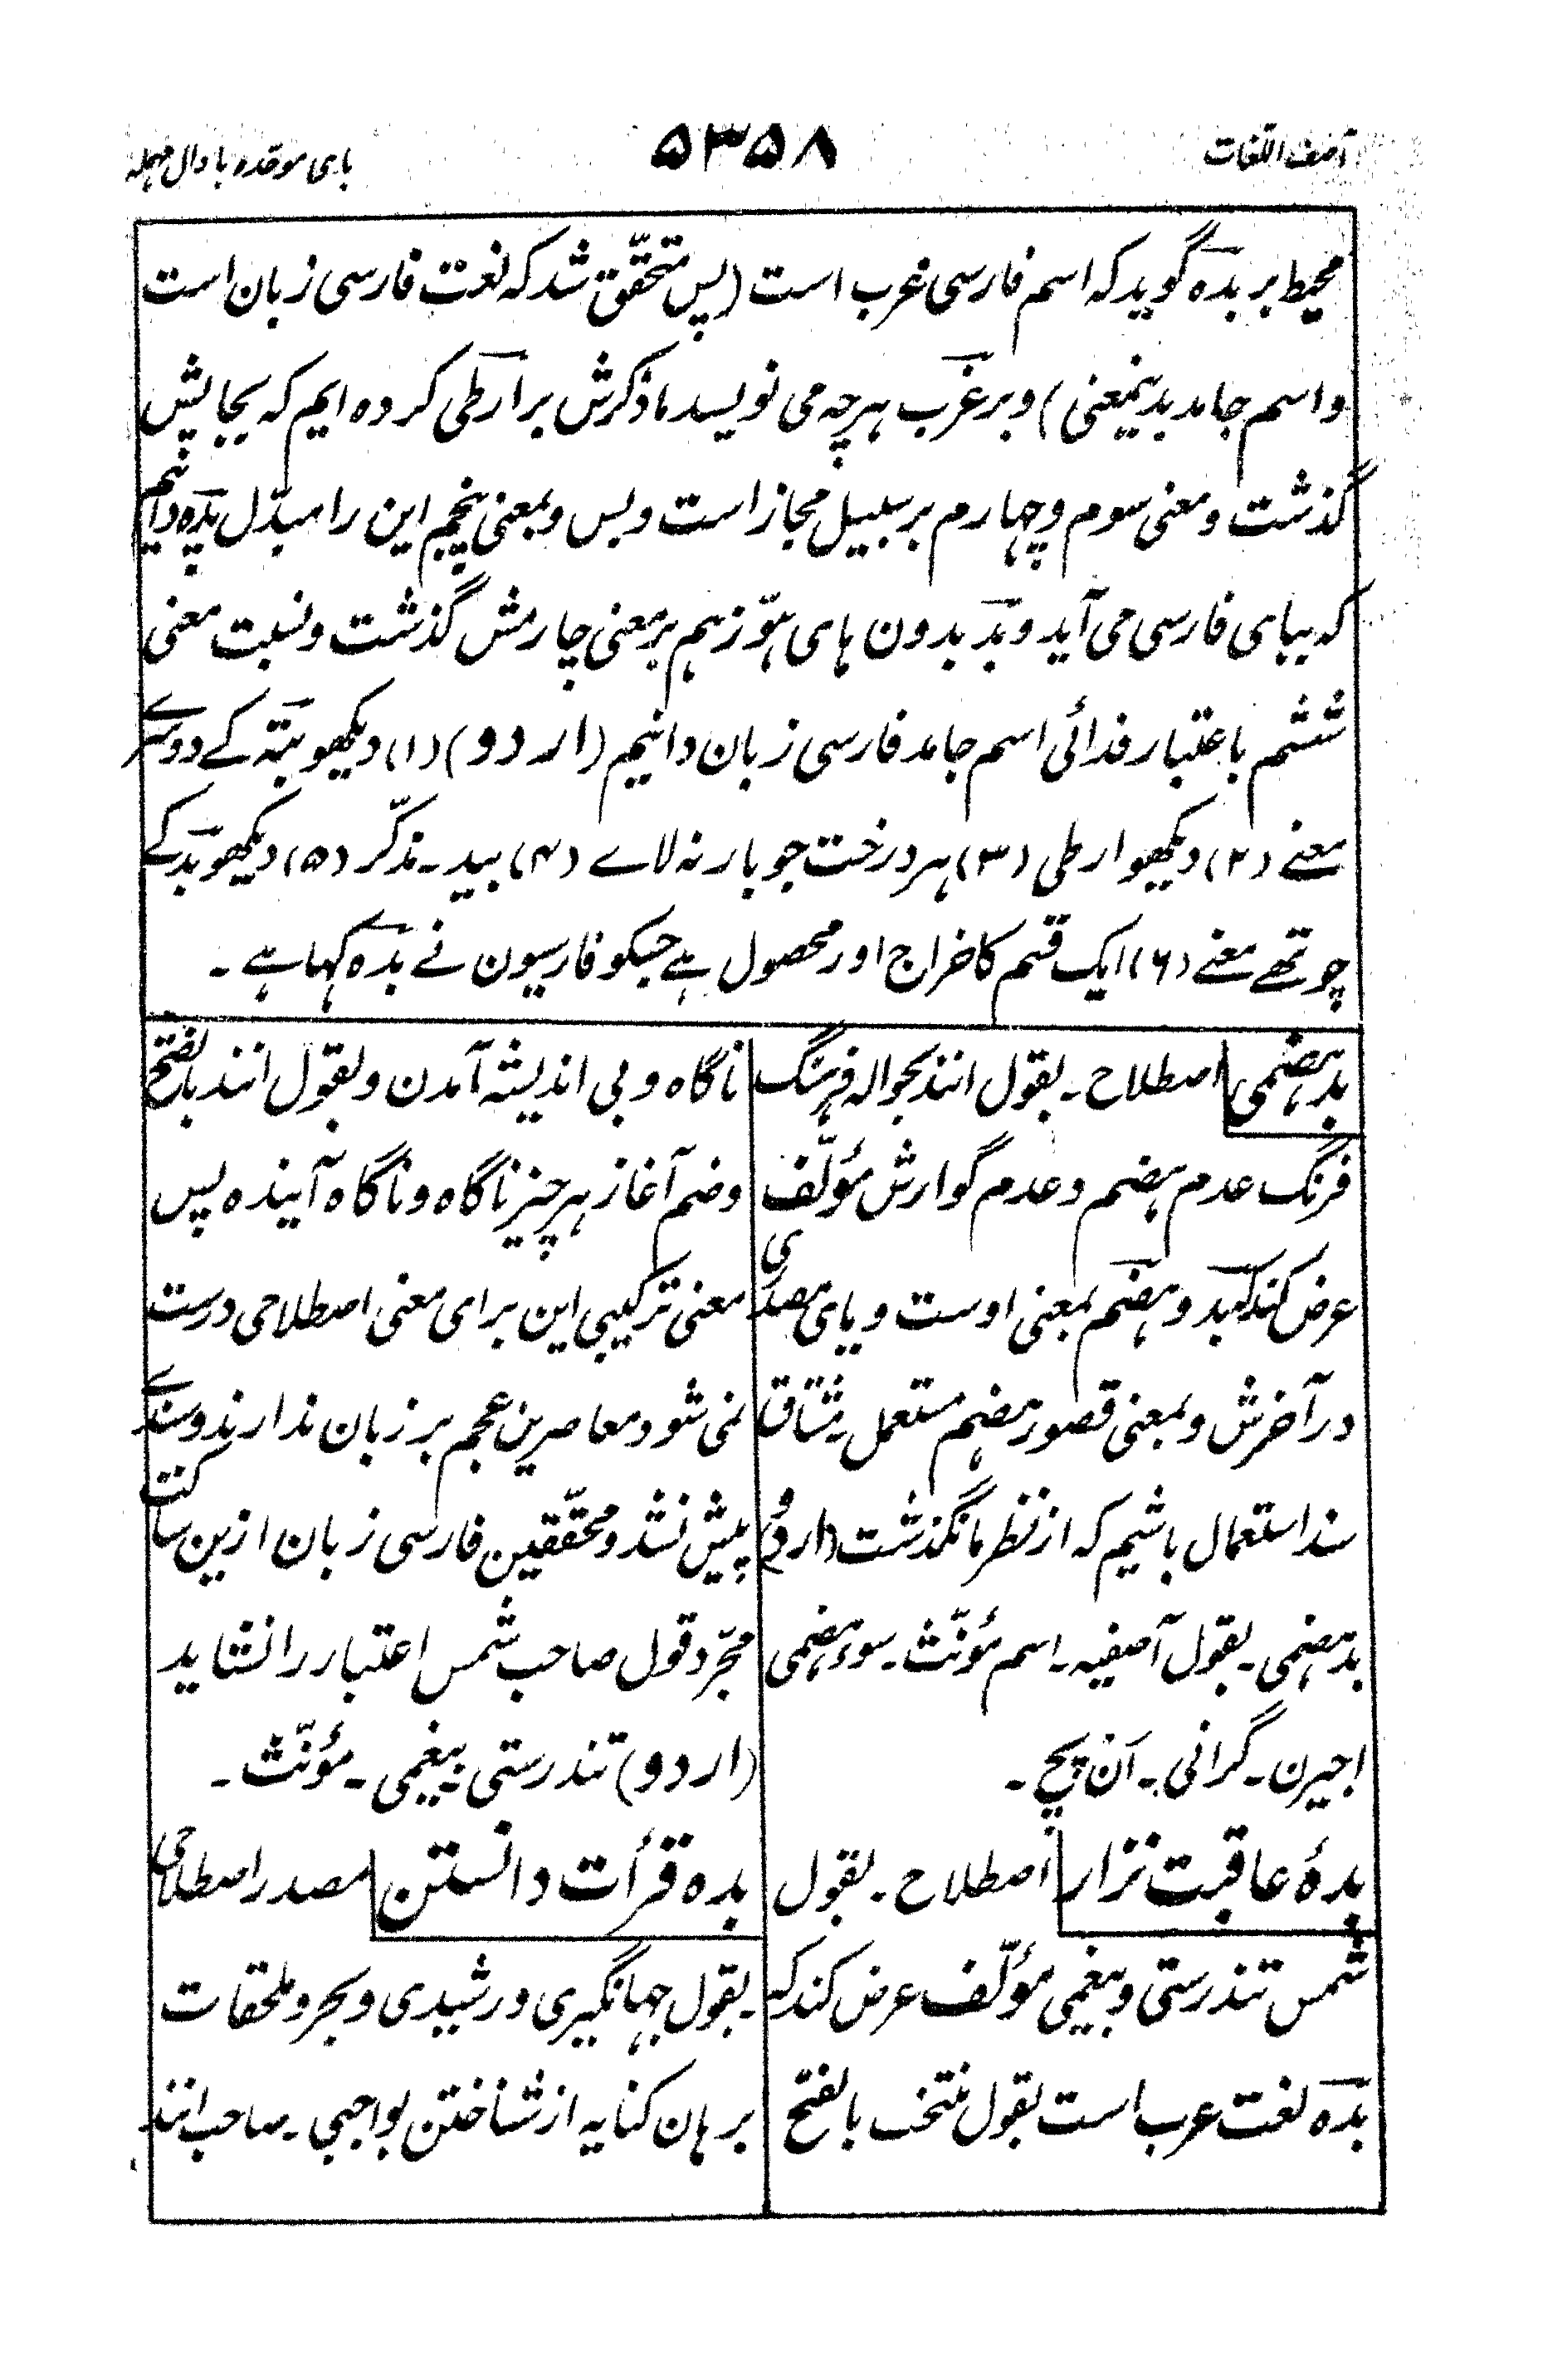 آصف اللغات
۵۳۵۸
بای موحده با دال مہملہ
محیط بر بده گوید که اسم فارسی غرب است (پس متحقّق شد که لغت فارسی زبان است
و اسم جامد بدینمعنی) و بر غرب هرچه می نویسد ما ذکرش بر ارطی کرده ایم که بجایش
گذشت و معنی سوم و چهارم بر سبیل مجاز است و بس و بمعنی پنجم این را مبدّل پده دانیم
که ببای فارسی می آید و بد بدون های هوّز هم بر معنی چارمش گذشت و نسبت معنی
ششم باعتبار فدائی اسم جامد فارسی زبان دانیم (اردو) (۱) دیکھو بتّہ کے دوسرے
معنے (۲) دیکھو ارطی (۳) ہر درخت جو بار نہ لاے (۴) بید۔ مذکّر (۵) دیکھو بد کے
چوتھے معنے (۶) ایک قسم کا خراج اور محصول ہے جسکو فارسیون نے بدہ کہا ہے۔
بد هضمی اصطلاح۔ بقول انند بحوالہ فرہنگ
فرنگ عدم هضم و عدم گوارش مؤلّف
عرض کند که بد و هضم بمعنی اوست و یای مصدری
در آخرش و بمعنی قصور هضم مستعمل مشتاق
سند استعمال باشیم که از نظر ما نگذشت (اردو)
بد ہضمی۔ بقول آصفیہ۔ اسم مؤنّث۔ سوء ہضمی
اجیرن۔ گرانی۔ اَن پچ۔
بدهٔ عاقبت نزار اصطلاح۔ بقول
شمس تندرستی و بیغمی مؤلّف عرض کند که
بده لغت عرب است بقول منتخب بالفتح
ناگاه و بی اندیشه آمدن و بقول انند بالفتح
و ضم آغاز هر چیز ناگاه و ناگاه آینده پس
معنی ترکیبی این برای معنی اصطلاحی درست
نمی شود و معاصرین عجم بر زبان ندارند و سندے
پیش نشد و محقّقین فارسی زبان ازین ساکت
مجرّد قول صاحب شمس اعتبار را نشاید
(اردو) تندرستی۔ بیغمی۔ مؤنّث۔
بده قرأت دانستن مصدر اصطلاحی
۔ بقول جهانگیری و رشیدی و بحر و ملحقات
برهان کنایه از شناختن بواجبی۔ صاحب انند